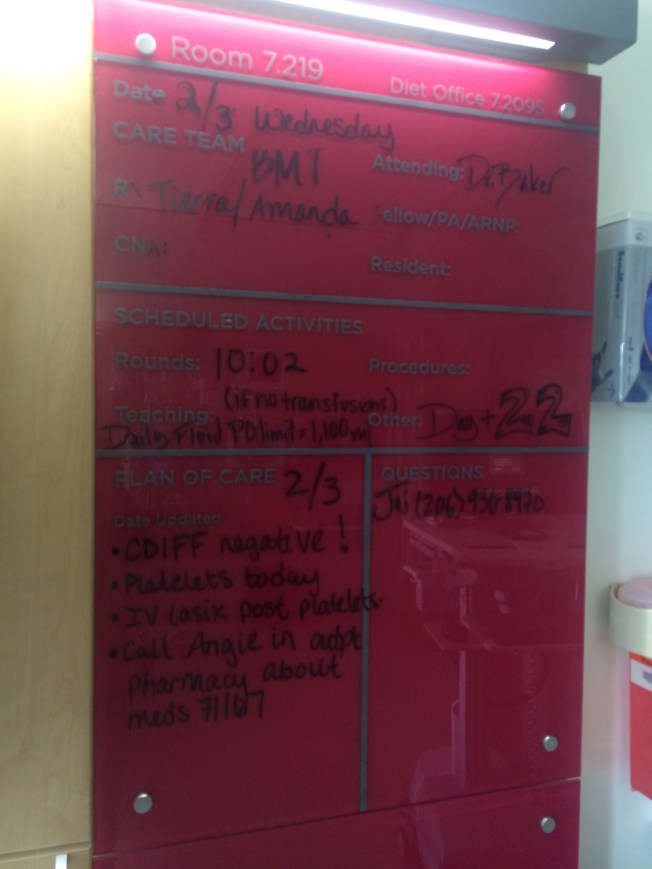 Room 7.219
Diet Office 7.2095
Date 2/3 Wednesday
CARE TEAM BMT
Attending: Dr. Baker
R Tierra/Amanda
ellow/PA/ARNP:
CNA:
Resident:
SCHEDULED ACTIVITIES
Rounds: 10:02
Procedures:
Teaching: (if no transfusions)
Daily Fluid PO limit = 1,100 ml
Other: Day + 22
PLAN OF CARE 2/3
Date Updated
• CDIFF negative!
• Platelets today
• IV lasix post platelets
• Call Angie in outpt
pharmacy about
meds 71167
QUESTIONS
(206) 930-8970